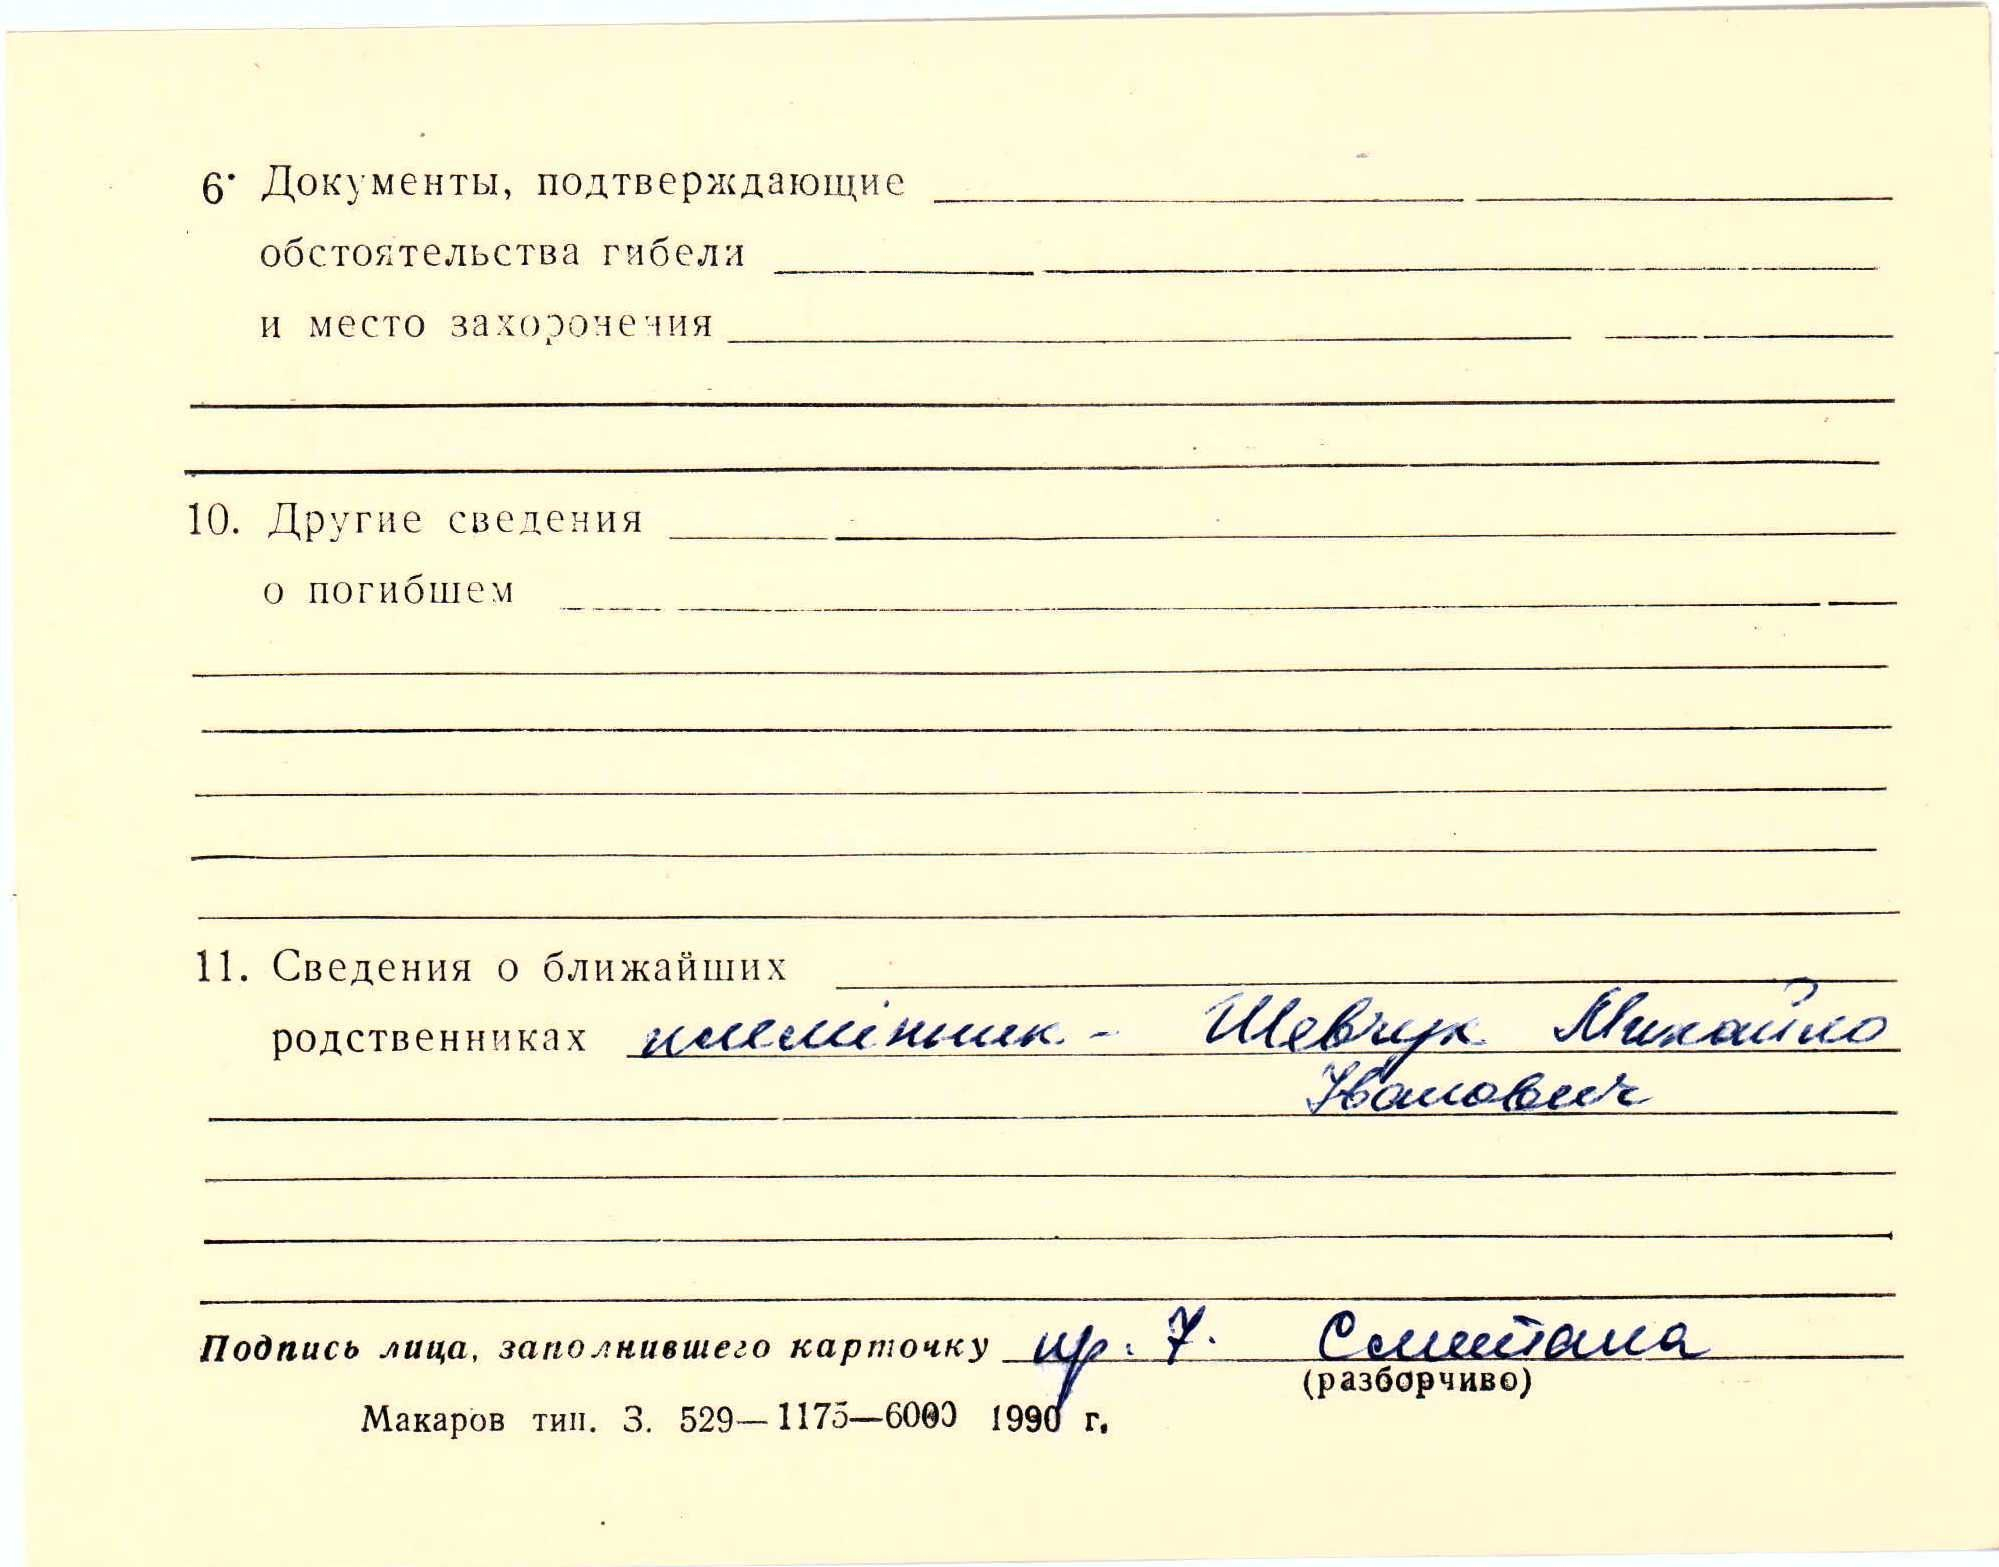 6. Документы, подтверждающие
обстоятельства гибели
и место захоронения
10. Другие сведения
о погибшем
11. Сведения о ближайших
родственниках племінник - Шевчук Михайло
Іванович
Подпись лица, заполнившего карточку Сметана
(разборчиво)
Макаров тип. З. 529—1175—6000 1990 г.